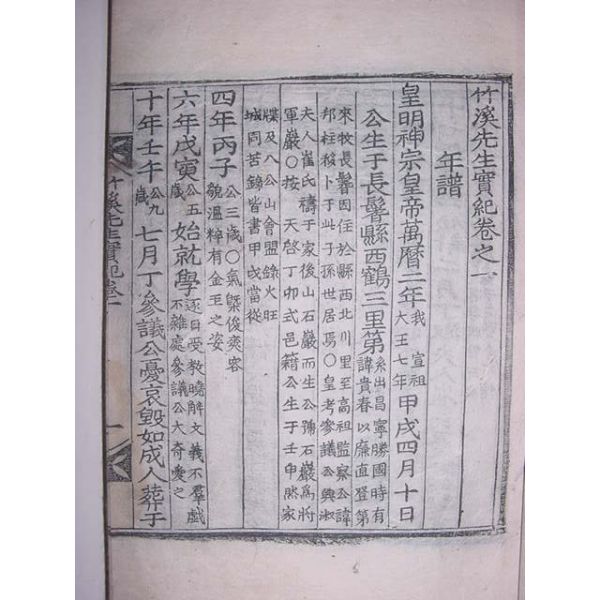 竹溪先生實紀卷之一
年譜
皇明神宗皇帝萬曆二年我 宣祖大王七年甲戌四月十日
公生于長鬐縣西鶴三里第系出昌寧勝國時有諱貴春以廉直登第
來牧長鬐因住於縣西北川里至高祖監察公諱
邦柱移卜于此子孫世居焉○皇考參議公興淑
夫人崔氏禱于家後山石巖而生公號石巖爲將
軍巖○按 天啓丁卯式邑籍公生于壬申然家
牒及八公山會盟錄火旺
城同苦錄皆書甲戌當從
四年丙子公三歲○氣槩俊爽容貌溫粹有金玉之姿
六年戊寅公五歲始就學逐日受教曉解文義不羣戲不雜處參議公大奇愛之
十年壬午公九歲七月丁參議公憂哀毀如成人葬于
竹溪先生實紀卷一
一